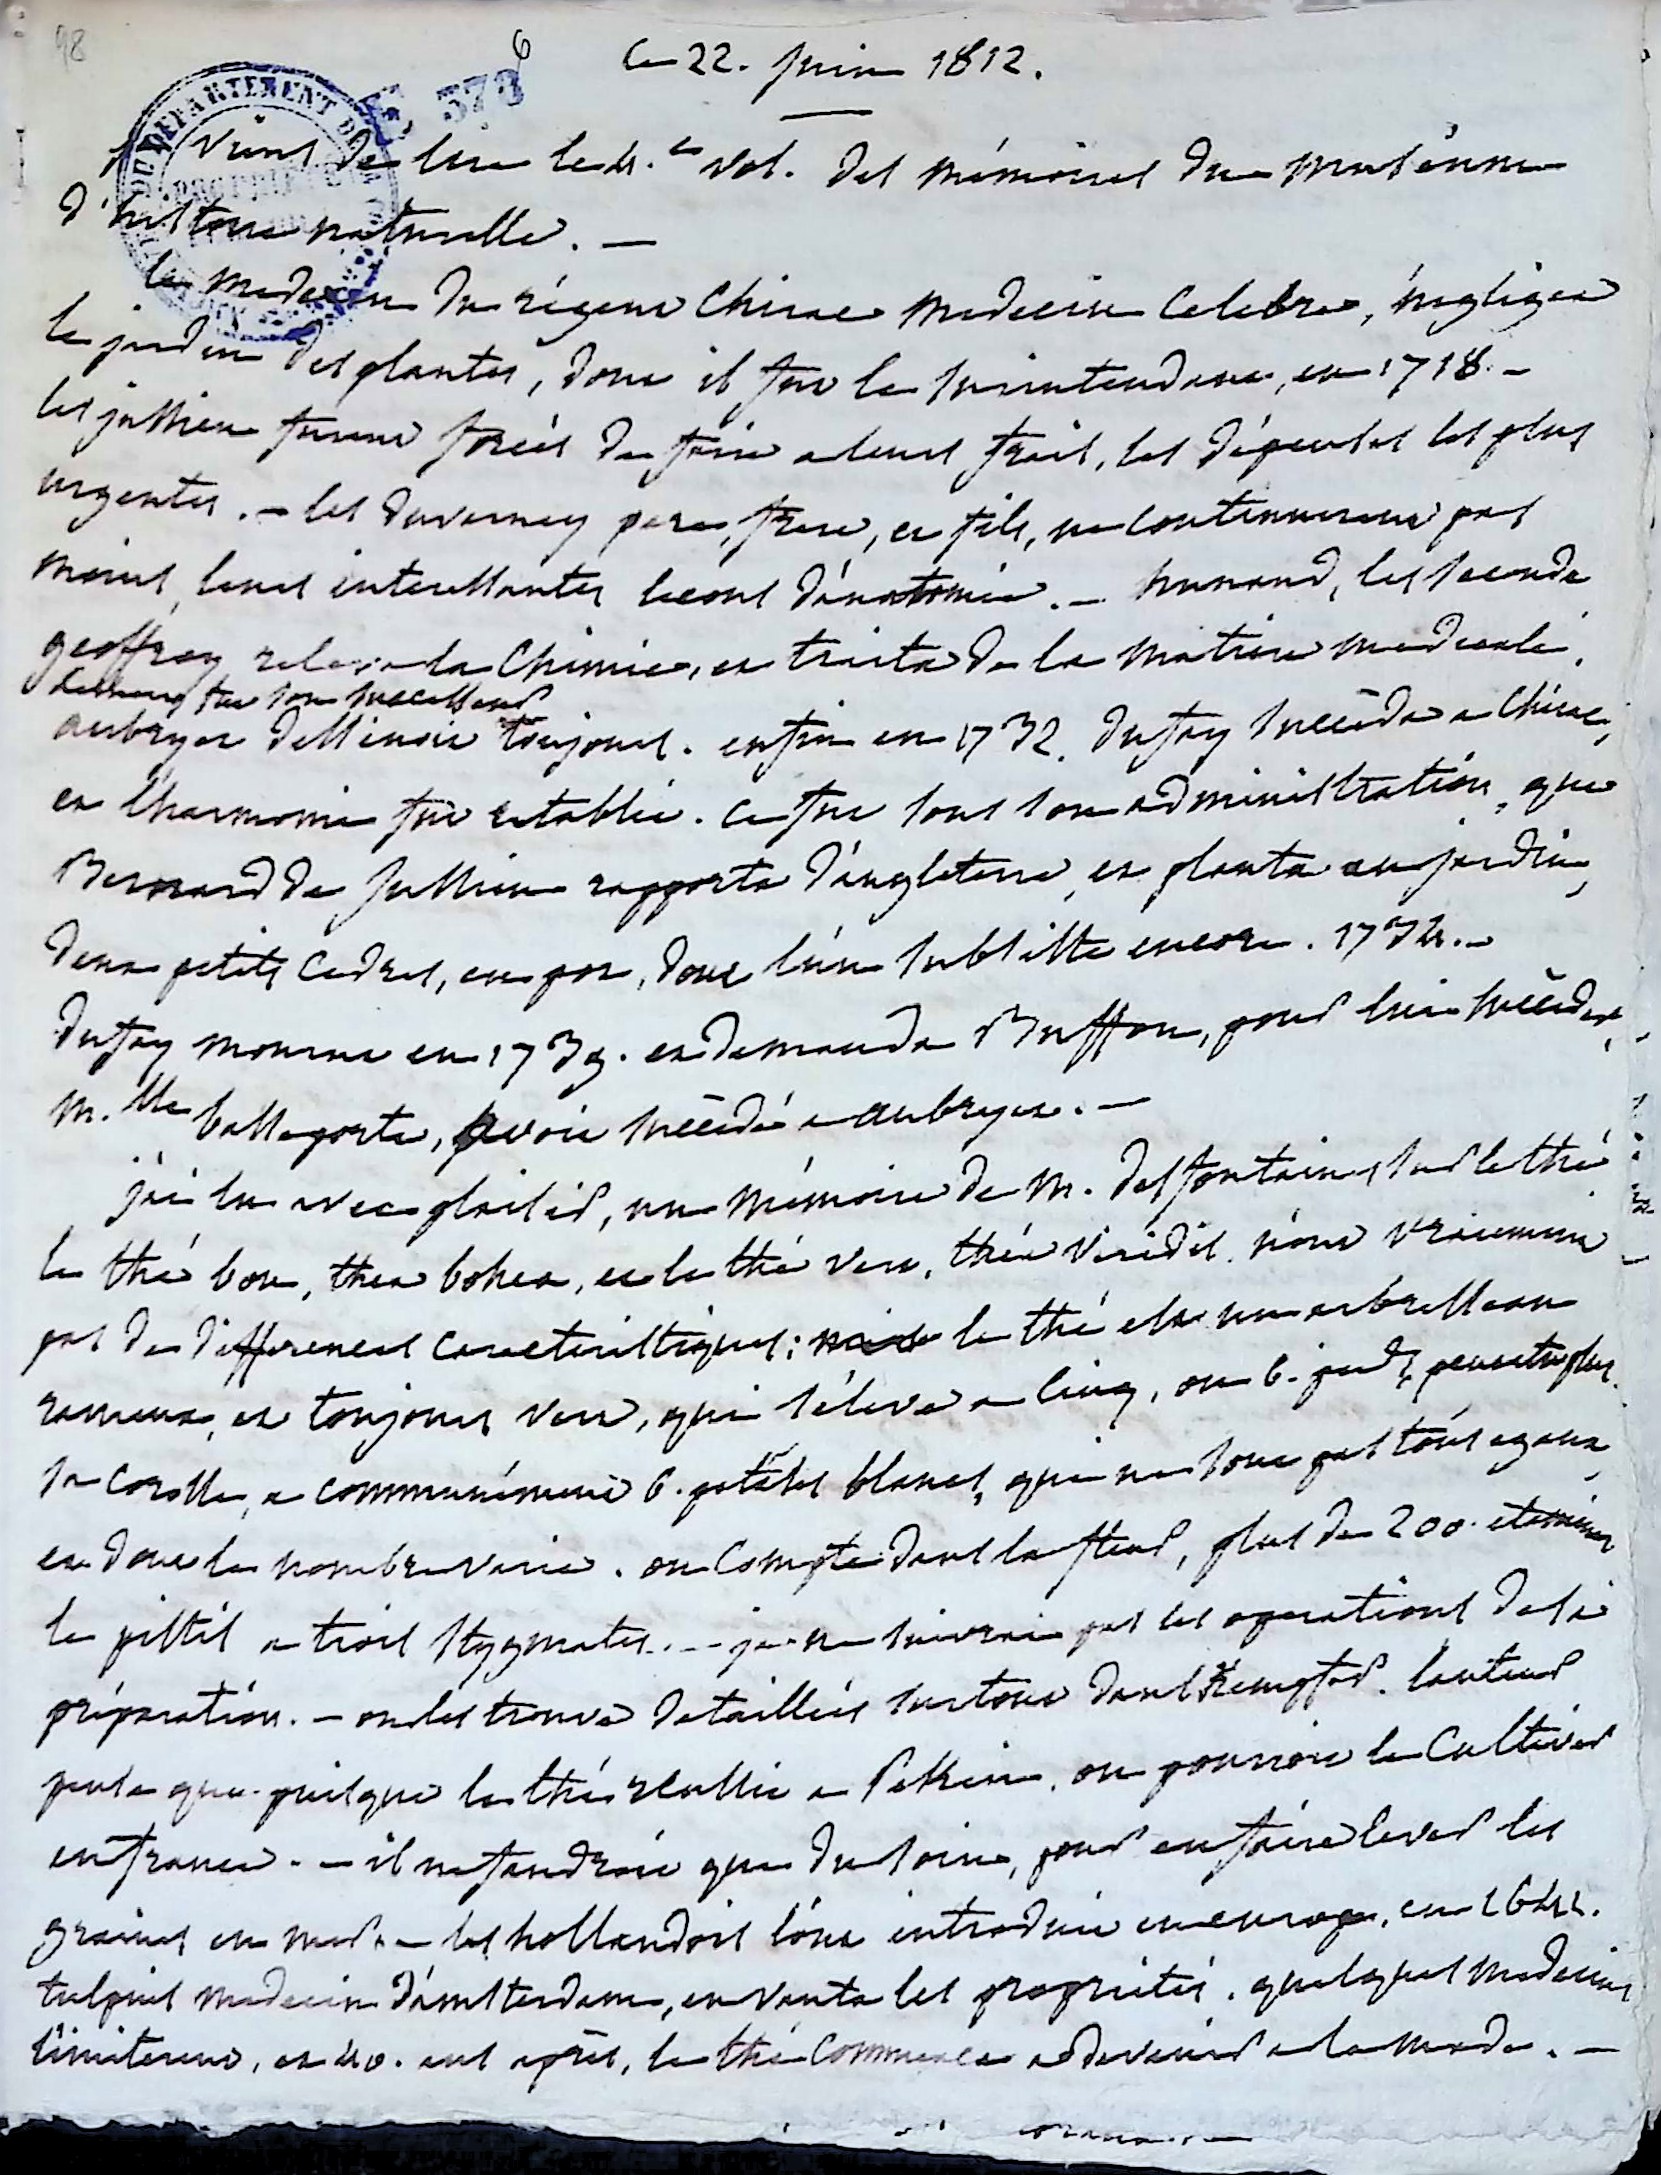 98
6
Ce 22. juin 1812.
E, 378
DU DEPARTEMENT D
PROPRIETE
je viens de lire le 4.e vol. des mémoires du muséum
d'histoire naturelle. —
le medecin du régent Chirac medecin celebre, négligea
le jardin des plantes, dont il fut le surintendant, en 1718. —
les jussieu furent forcés de faire a leurs frais, les dépenses les plus
urgentes. — les duverney pere, frere, et fils, ne continuerent pas
moins, leurs interessantes lecons d'anatomie. — hunaud, les seconda
geoffroy releva la chimie, et traita de la matiere medicale.
fut son successeur
aubryet dessinoit toujours. enfin en 1732. dufay succéda a Chirac,
et l'harmonie fut retablie. ce fut sous son administration, que
Bernard de Jussieu rapporta d'angleterre, et planta au jardin,
deux petits cedres, en pot, dont l'un subsiste encore. 1734. —
dufay mourut en 1739. et demanda Buffon, pour lui succéder,
m.lle basseporte, avoit succédé a aubryet. —
j'ai lu avec plaisir, un mémoire de m. desfontaines sur le thé
le thé bou, thea bohea, et le thé vert, théa viridis. n'ont vraiement
pas de differences caracteristiques; mais le thé est un arbrisseau
rameux, et toujours vert, qui s'éleve a cinq, ou 6. pieds, peutetre plus.
sa corolle, a communément 6. petales blancs, qui ne sont pas tous egaux,
et dont le nombre varie. on compte dans la fleur, plus de 200. etamines
le pistil a trois stygmates. -- je ne suivrai pas les operations de sa
préparation. — on les trouve detaillées surtout dans Kempfer. l'auteur
pense que puisque le thé reussit a Pekin, on pourroit le cultiver
en france. — il ne faudroit que du soin, pour en faire lever les
graines en mer. — les hollandois l'ont introduit en europe, en 1641.
tulpius medecin d'amsterdam, en vanta les propriétés. quelques medecins
l'imiterent, et 40. ans après, le thé commença a devenir a la mode. —